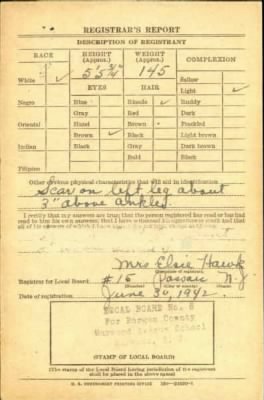 REGISTRAR'S REPORT
DESCRIPTION OF REGISTRANT
RACE HEIGHT (Approx.) WEIGHT (Approx.) COMPLEXION
White ✓ 5' 5 3/4" 145 Sallow
EYES HAIR Light ✓
Negro Blue Blonde ✓ Ruddy
Gray Red Dark
Oriental Hazel Brown Freckled
Brown ✓ Black Light brown
Indian Black Gray Dark brown
Bald Black
Filipino
Other obvious physical characteristics that will aid in identification
Scar on left leg about
3" above ankle.
I certify that my answers are true; that the person registered has read or has had
read to him his own answers; that I have witnessed his signature or mark and that
all of his answers of which I have
Mrs Elsie Hawk
Registrar for Local Board #15 Passaic N.J.
Date of registration June 30, 1942
LOCAL BOARD No. 8
For Bergen County
School
(STAMP OF LOCAL BOARD)
(The stamp of the Local Board having jurisdiction of the registrant
shall be placed in the above space)
U. S. GOVERNMENT PRINTING OFFICE